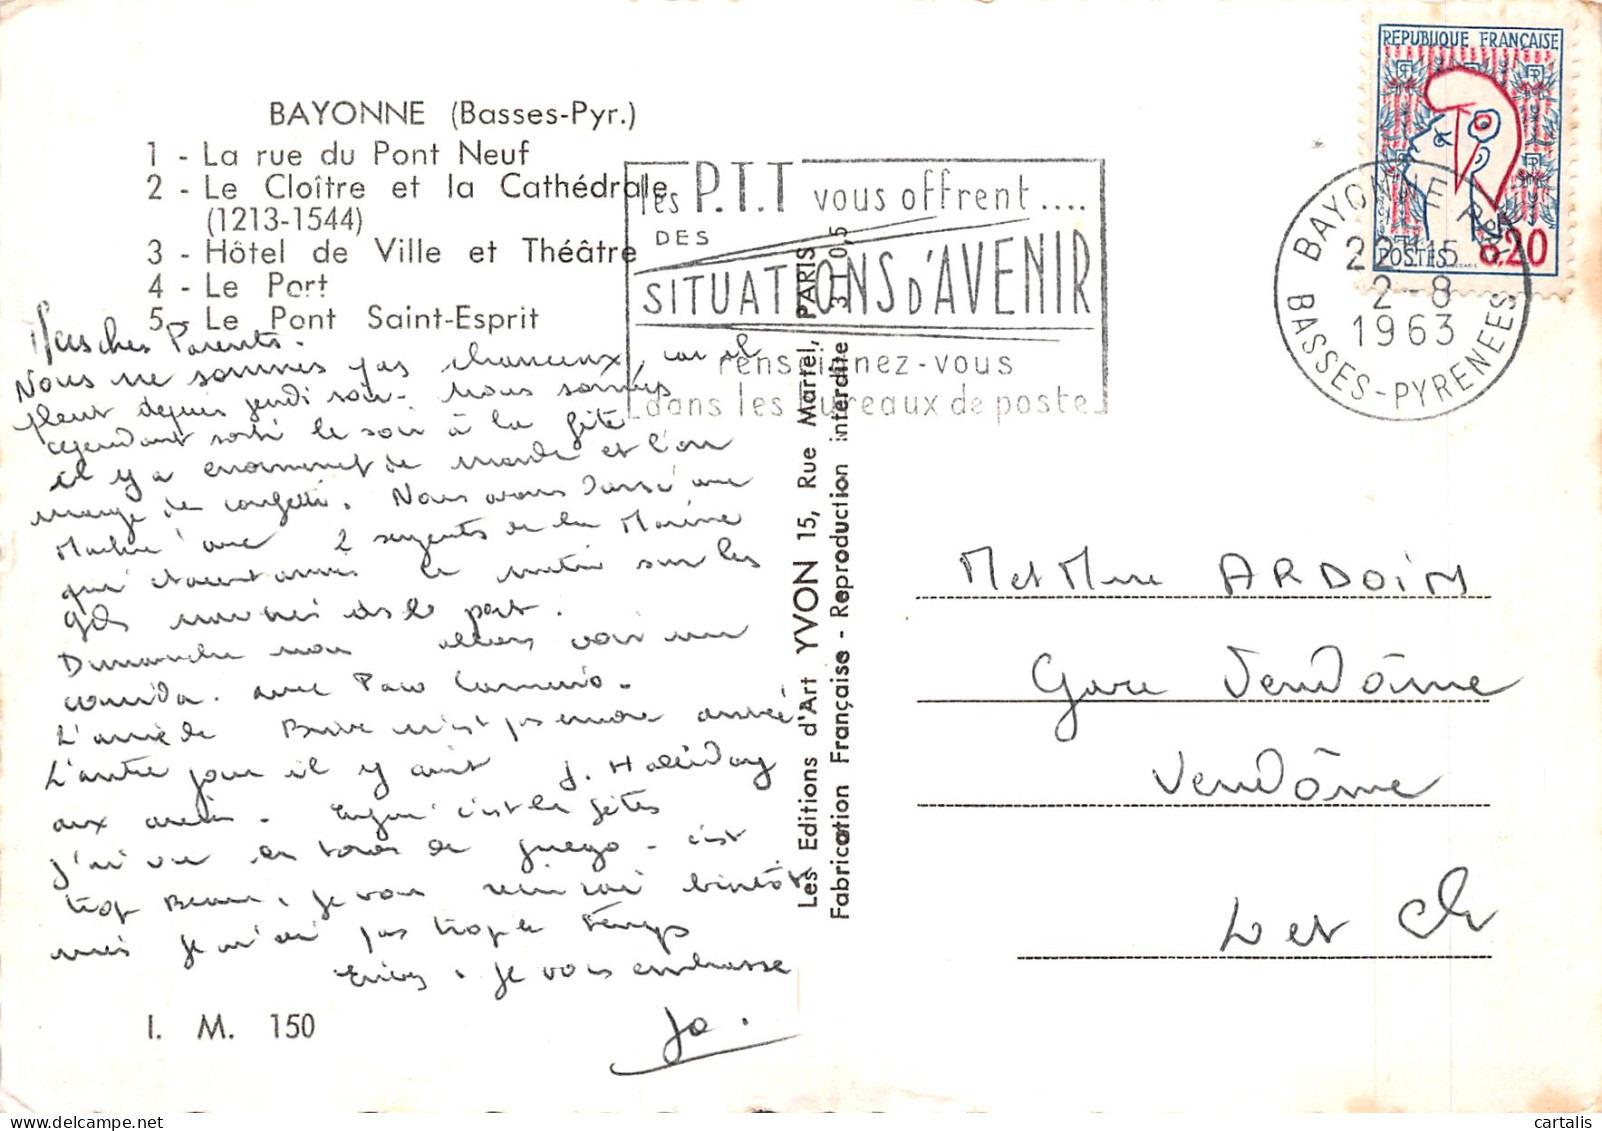 BAYONNE (Basses-Pyr.)
1 - La rue du Pont Neuf
2 - Le Cloître et la Cathédrale
(1213-1544)
3 - Hôtel de Ville et Théâtre
4 - Le Port
5 - Le Pont Saint-Esprit
les P.T.T vous offrent ....
DES
SITUATIONS D'AVENIR
renseignez-vous
dans les bureaux de poste
REPUBLIQUE FRANÇAISE
POSTES 0,20
BAYONNE PPAL
22H15
2-8
1963
BASSES-PYRENEES
chers Parents.
Nous ne sommes pas chanceux, car il
pleut depuis jeudi soir. Nous sommes
cependant sorti le soir à la fête
il y a énormément de monde et l'on
mange des confetti. Nous avons dansé avec
avec 2 sergents de la Marine
qui étaient arrivés le matin sur les
gds navires ds le port.
Dimanche nous allons voir une
corrida. avec Paco Camino.
L'armée de Brive n'est pas encore arrivée
L'autre jour il y avait J. Halliday
aux arènes. c'est les fêtes
j'ai vu les toros de fuego - c'est
trop Beau. je vous bientôt
mais je n'ai pas trop le temps
je vous embrasse
Jo.
I. M. 150
Les Editions d'Art YVON 15, Rue Martel, PARIS
Fabrication Française - Reproduction interdite 31 0,5
M et Mme ARDOIN
Gare Vendôme
Vendôme
L et Ch
cartalis